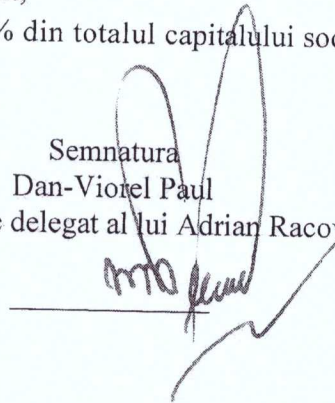 % din totalul capitalului soc
Semnatura
Dan-Viorel Paul
e delegat al lui Adrian Raco